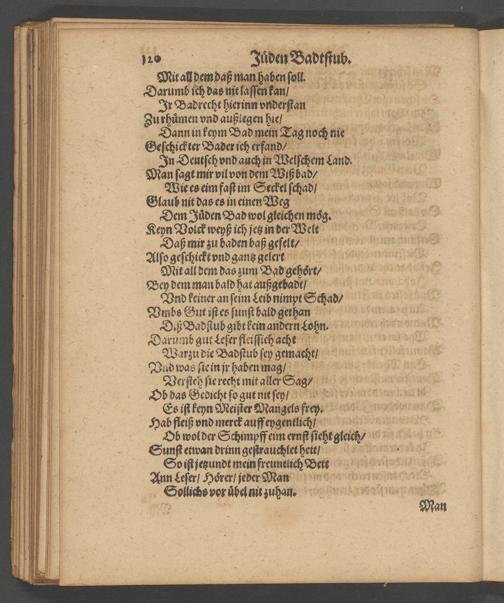 120 Jüden Badtstub.
Mit all dem daß man haben soll.
Darumb ich das nit lassen kan/
Jr Badrecht hierinn vnderstan
Zu rhümen vnd außlegen hie/
Dann in keym Bad mein Tag noch nie
Geschickter Bader ich erfand/
In Deutsch vnd auch in Welschem Land.
Man sagt mir vil von dem Wißbad/
Wie es eim fast im Seckel schad/
Glaub nit das es in einen Weg
Dem Jüden Bad wol gleichen mög.
Keyn Volck weyß ich jetz in der Welt
Daß mir zu baden baß gefelt/
Also geschickt vnd gantz gelert
Mit all dem das zum Bad gehört/
Bey dem man bald hat außgebadt/
Vnd keiner an seim Leib nimpt Schad/
Vmbs Gut ist es sunst bald gethan
Diß Badstub gibt kein andern Lohn.
Darumb gut Leser fleissich acht
Warzu die Badstub sey gemacht/
Vnd was sie in jr haben mag/
Versteh sie recht mit aller Sag/
Ob das Gedicht so gut nit sey/
Es ist keyn Meister Mangels frey.
Hab fleiß vnd merck auff eygentlich/
Ob wol der Schimpff eim ernst sicht gleich/
Sunst etwan drinn gestrauchlet hett/
So ist jetzundt mein freuntlich Bett
Ann Leser/ Hörer/ jeder Man
Sollichs vor übel nit zu han.
Man